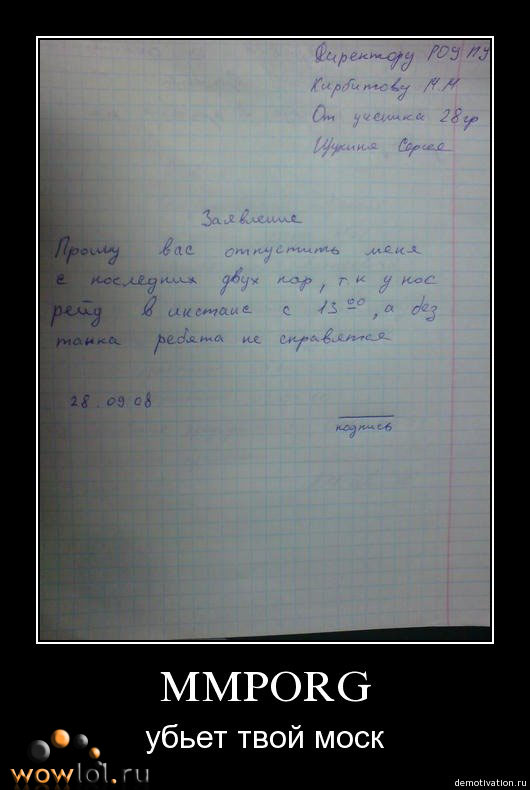 Директору РОУ ПУ
Кирбитову М.М
От ученика 28гр
Щукина Сергея
Заявление
Прошу вас отпустить меня
с последних двух пар, т.к у нас
рейд в инстанс с 13 00, а без
танка ребята не справятся
28.09.08
подпись
MMPORG
убьет твой моск
wowlol.ru
demotivation.ru